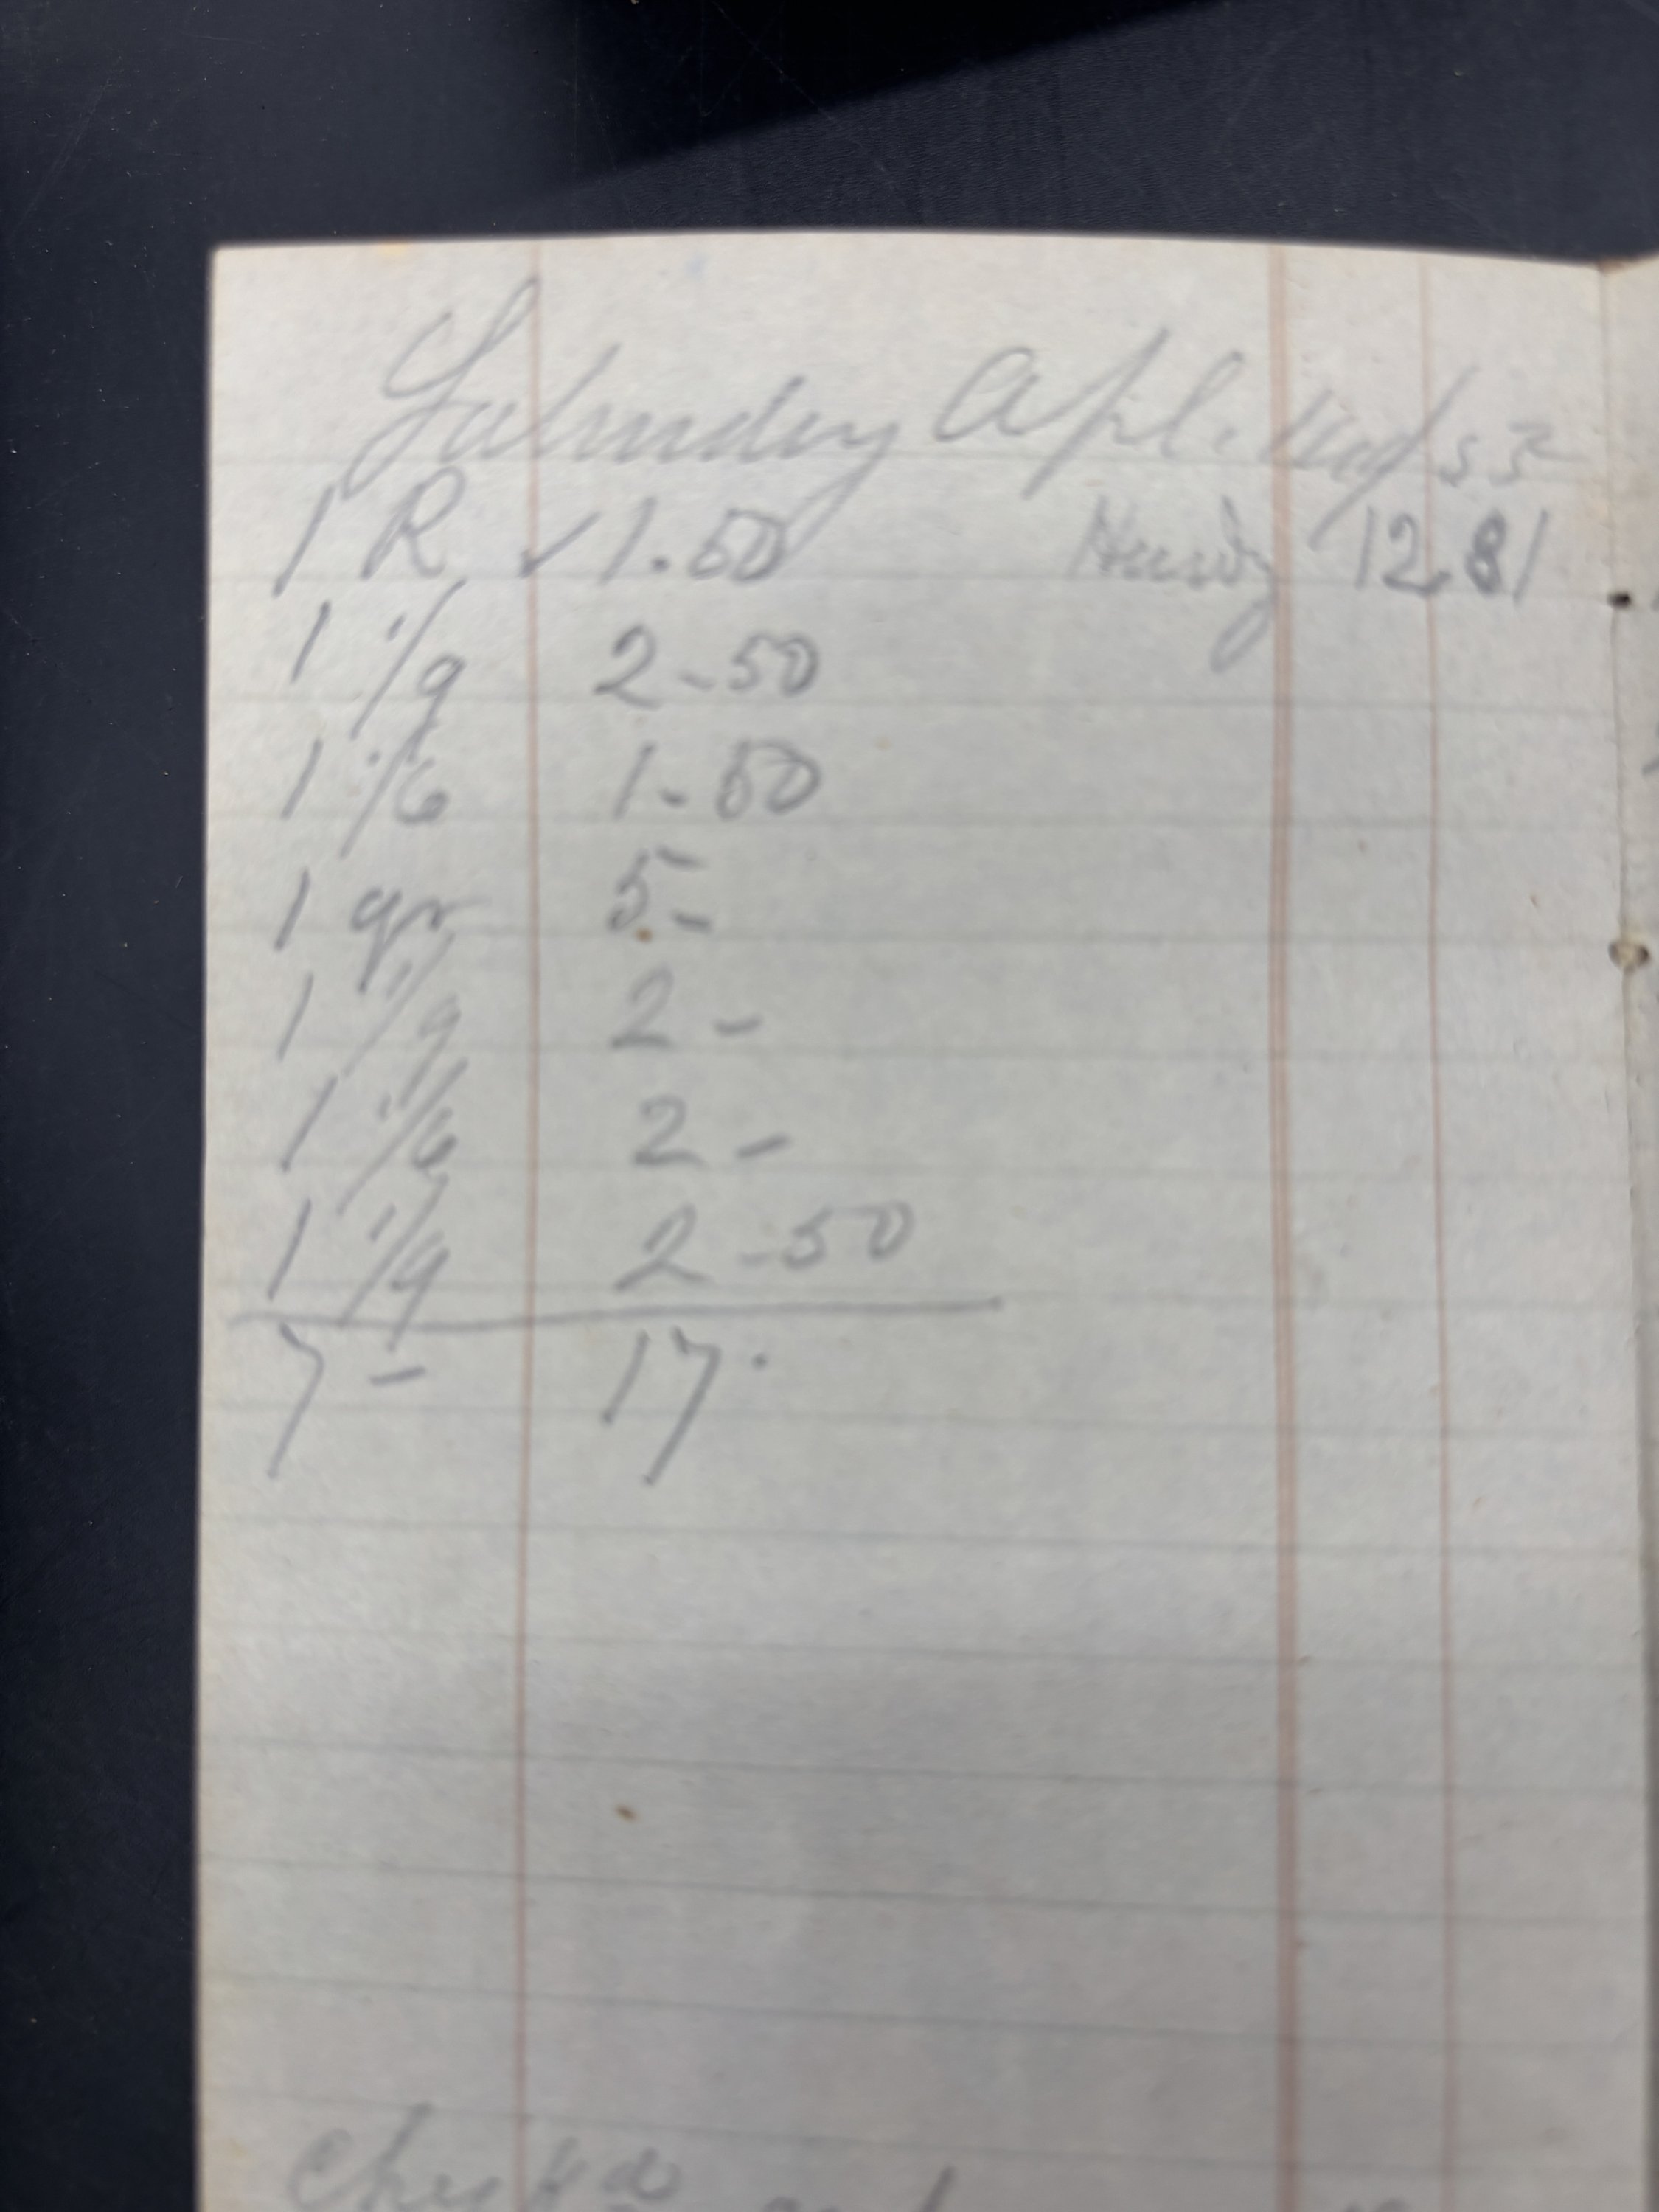 Saturday Apl.
1 R ✓ 1.50 12 81
1 1/9 2-50
1 1/6 1-50
1 qr 5-
1 1/9 2-
1 1/6 2-
1 1/9 2-50
7- 17.